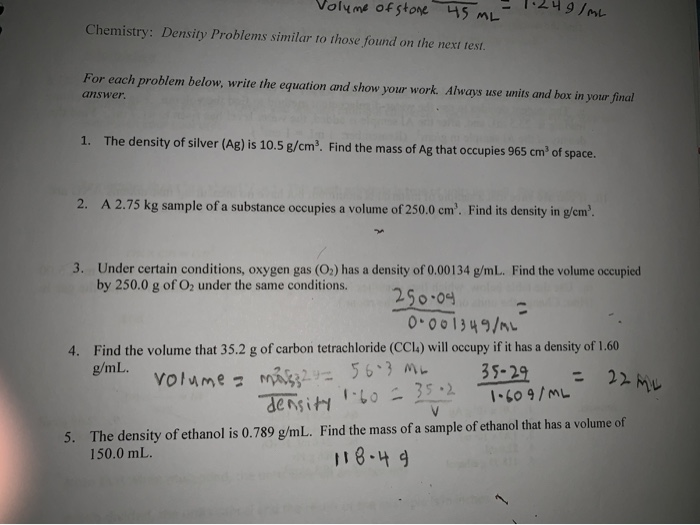 Volume of stone 45 mL = 1.24g/mL
Chemistry: Density Problems similar to those found on the next test.
For each problem below, write the equation and show your work. Always use units and box in your final
answer.
1. The density of silver (Ag) is 10.5 g/cm³. Find the mass of Ag that occupies 965 cm³ of space.
2. A 2.75 kg sample of a substance occupies a volume of 250.0 cm³. Find its density in g/cm³.
3. Under certain conditions, oxygen gas (O₂) has a density of 0.00134 g/mL. Find the volume occupied
by 250.0 g of O₂ under the same conditions.
250.0g
0.00134g/mL =
4. Find the volume that 35.2 g of carbon tetrachloride (CCl₄) will occupy if it has a density of 1.60
g/mL.
volume = mass = 56.3 mL 35.2g = 22 mL
density 1.60 = 35.2 1.60g/mL
V
5. The density of ethanol is 0.789 g/mL. Find the mass of a sample of ethanol that has a volume of
150.0 mL.
118.4g